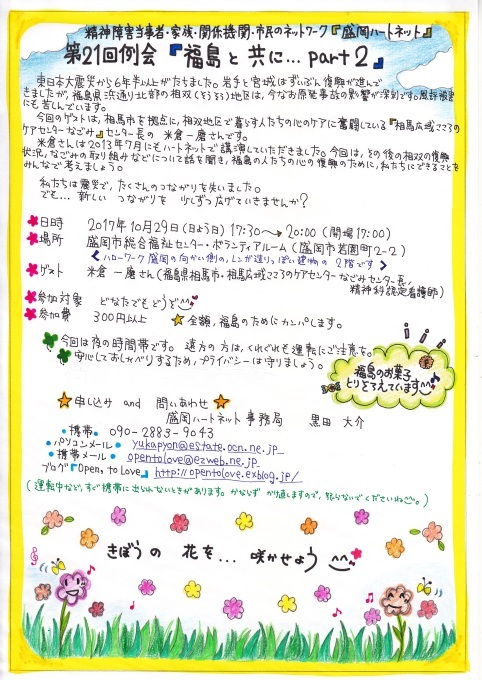 精神障害当事者・家族・関係機関・市民のネットワーク『盛岡ハートネット』
第21回例会『福島と共に… part2』
東日本大震災から6年半以上がたちました。岩手と宮城はずいぶん復興が進んで
きましたが、福島県浜通り北部の相双(そうそう)地区は、今なお原発事故の影響が深刻です。風評被害
にも苦しんでいます。
今回のゲストは、相馬市を拠点に、相双地区で暮らす人たちの心のケアに奮闘している『相馬広域こころの
ケアセンターなごみ』センター長の 米倉一磨さんです。
米倉さんは2013年7月にもハートネットで講演していただきました。今回は、その後の相双の復興
状況、なごみの取り組みなどについて話を聞き、福島の人たちの心の復興のために、私たちにできることを
みんなで考えましょう。
私たちは震災で、たくさんのつながりを失いました。
でも… 新しい つながりを 少しずつ広げていきませんか?
日時 2017年10月29日(日よう日) 17:30→20:00 (開場17:00)
場所 盛岡市総合福祉センター・ボランティアルーム (盛岡市若園町2-2)
<ハローワーク盛岡の向かい側の、レンガ造りっぽい建物の 2階です>
ゲスト 米倉一磨さん(福島県相馬市・相馬広域こころのケアセンターなごみセンター長、
精神科認定看護師)
参加対象 どなたでもどうぞ
参加費 300円以上 ☆全額、福島のためにカンパします。
今回は夜の時間帯です。遠方の方は、くれぐれも運転にご注意を。
安心しておしゃべりするため、プライバシーは守りましょう。
福島のお菓子
とりそろえています
☆申し込み and 問いあわせ☆
盛岡ハートネット事務局 黒田 大介
・携帯・ 090-2883-9043
・パソコンメール・ yukapyon@estate.ocn.ne.jp
・携帯メール・ opentolove@ezweb.ne.jp
ブログ『Open, to Love』 http://opentolove.exblog.jp/
(運転中など、すぐ携帯に出られないときがあります。かならず かけ直しますので、怒らないでくださいね。)
きぼうの 花を… 咲かせよう